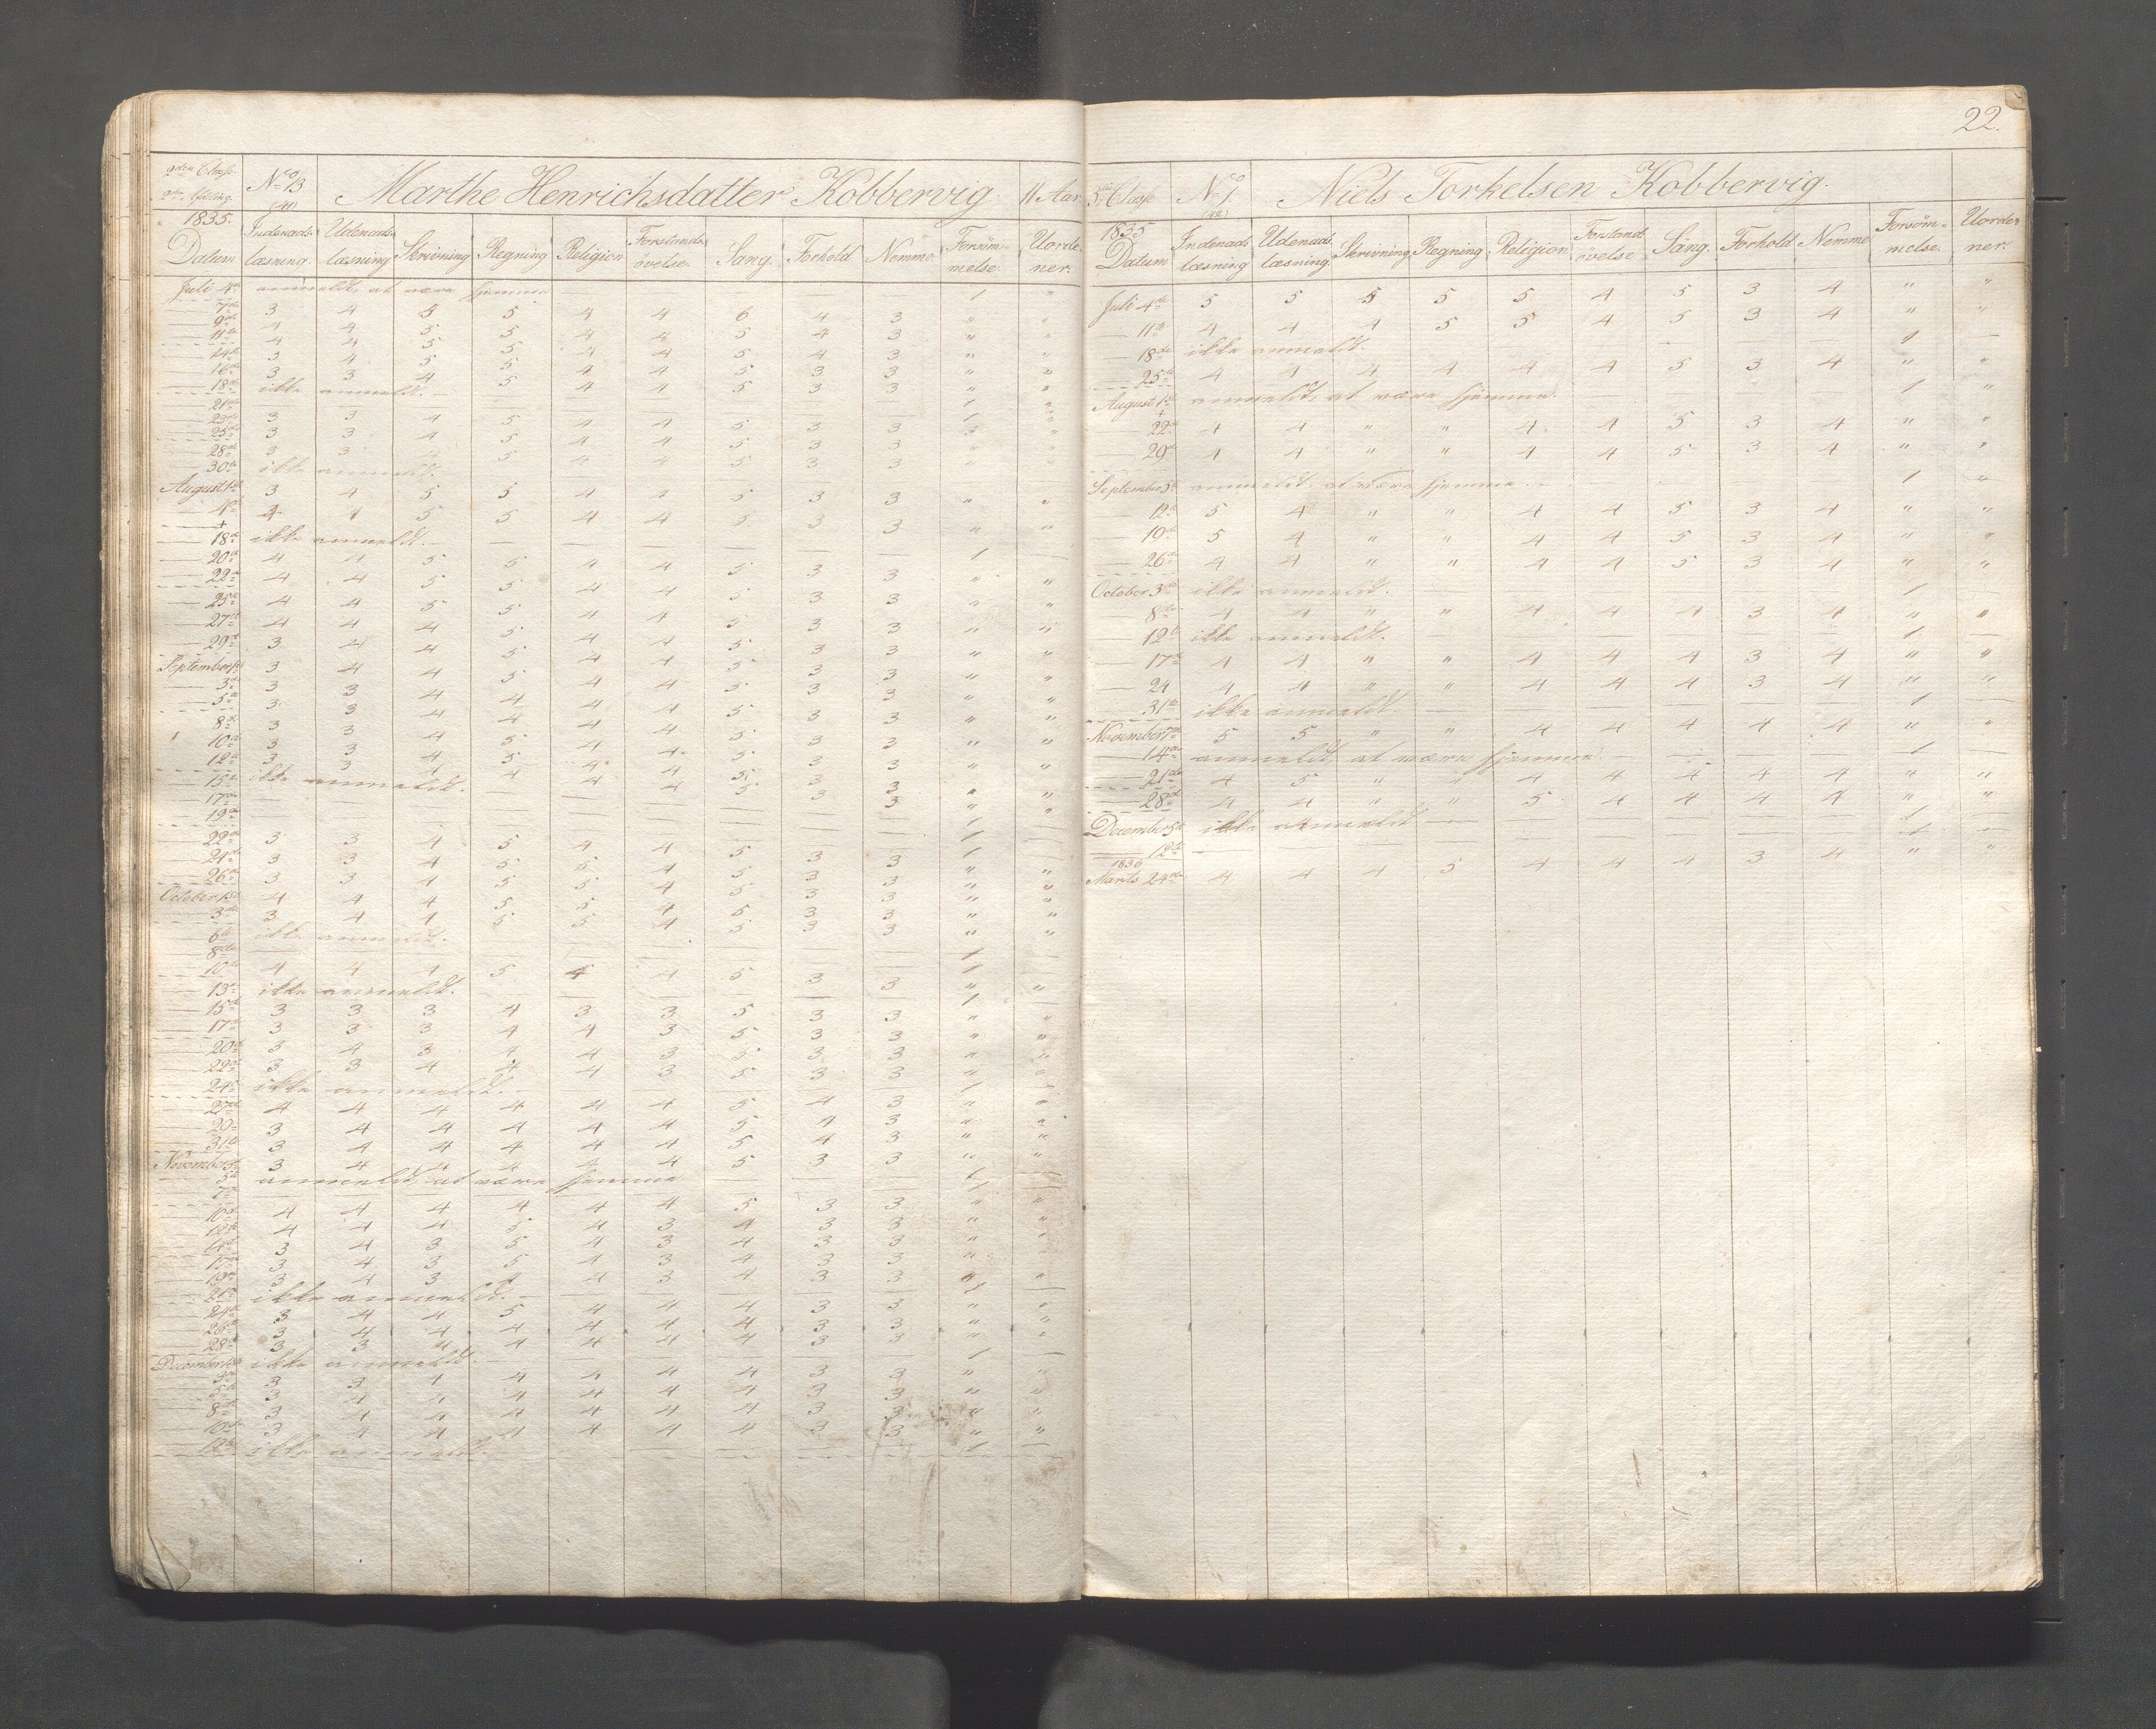 22.
2den Classe.
2den Afdeling.
No 13
(41)
Marthe Henrichsdatter Kobbervig.
11 Aar.
1835.
Datum
Indenads-læsning.
Udenads-læsning
Skrivning
Regning
Religion
Forstands-øvelse.
Sang.
Forhold
Nemme.
Forsøm-melse.
Uorde-ner.
Juli 4de anmeldt, at være hjemme 1 "
7de 3 4 5 5 4 4 6 4 3 " "
9de 4 4 5 5 4 4 5 4 3 " "
11te 4 4 5 5 4 4 5 4 3 " "
14de 3 4 5 5 4 4 5 3 3 " "
16de 3 3 4 5 4 4 5 3 3 " "
18de ikke anmeldt. 1
21de 1
23de 3 3 4 5 4 4 5 3 3
25de 3 3 4 5 4 4 5 3 3
28de 3 3 4 5 4 4 5 3 3
30te ikke anmeldt.
August 1ste 3 4 5 5 4 4 5 3 3 " "
4de 4 4 5 5 4 4 5 3 3 " "
18de ikke anmeldt. 1
20de 4 4 5 5 4 4 5 3 3 " "
22de 4 4 5 5 4 4 5 3 3 " "
25de 4 4 5 5 4 4 5 3 3 " "
27de 4 4 4 5 4 4 5 3 3 " "
29de 3 4 4 5 4 4 5 3 3 " "
September 1ste 3 4 4 5 4 4 5 3 3 " "
3die 3 3 4 4 4 4 5 3 3 " "
5te 3 3 4 4 4 4 5 3 3 " "
8de 3 3 4 5 4 4 5 3 3 " "
10de 3 3 4 5 4 4 5 3 3 " "
12te 3 3 4 4 4 4 5 3 3 " "
15de ikke anmeldt. 1
17de 1
19de 1
22de 3 3 4 5 4 4 5 3 3 " "
24de 3 3 4 5 5 4 5 3 3 " "
26de 3 3 4 5 5 4 5 3 3 " "
October 1ste 4 4 4 5 5 4 6 3 3 " "
3die 3 4 4 5 5 4 5 3 3 " "
6te ikke anmeldt. 1
8de 1
10de 4 4 4 5 4 4 5 3 3 " "
13de ikke anmeldt. 1
15de 3 3 3 4 3 3 5 3 3 " "
17de 3 3 3 4 4 3 5 3 3 " "
20de 3 4 3 4 4 3 5 3 3 " "
22de 3 3 4 4 4 3 5 3 3 " "
24de ikke anmeldt. 1
27de 4 4 4 4 4 4 5 4 3 " "
29 3 4 4 4 4 4 5 4 3 " "
31te 3 4 4 4 4 4 5 4 3 " "
November 3die 3 4 4 4 4 4 5 3 3 " "
5te anmeldt, at være hjemme 1
7de 1
10de 4 4 4 4 4 4 5 3 3 " "
12te 4 4 4 5 4 3 4 3 3 " "
14de 3 4 3 5 4 3 4 3 3 " "
17de 3 4 3 5 4 3 4 3 3 " "
19de 3 4 3 4 4 3 4 3 3 " "
21de ikke anmeldt. 1
24de 3 4 4 5 4 4 4 3 3 " "
26de 3 4 4 4 4 4 4 3 3 " "
28de 3 3 4 4 4 4 4 3 3 " "
December 1ste ikke anmeldt. 1
3die 3 3 4 4 4 4 4 3 3 " "
5te 3 4 4 4 4 4 4 3 3 " "
8de 3 4 4 4 4 4 4 3 3 " "
10de 3 4 4 4 4 4 4 3 3 " "
12te ikke anmeldt. 1
3die Classe
No 1.
(42)
Niels Torkelsen Kobbervig.
1835
Datum
Indenads læsning
Udenads læsning.
Skrivning
Regning
Religion
Forstands øvelse
Sang.
Forhold
Nemme
Forsøm-melse.
Uorde-ner.
Juli 4de 5 5 5 5 5 4 5 3 4 " "
11te 4 4 4 5 5 4 5 3 4 " "
18de ikke anmeldt. 1
25de 4 4 4 4 4 4 5 3 4 " "
August 1ste anmeldt, at være hjemme. 1 "
22de 4 4 " " 4 4 5 3 4 " "
29de 4 4 " " 4 4 5 3 4 " "
September 5te anmeldt, at være hjemme. 1 "
12te 5 4 " " 4 4 5 3 4 " "
19de 5 4 " " 4 4 5 3 4 " "
26de 4 4 " " 4 4 5 3 4 " "
October 3die ikke anmeldt. 1
8de 4 4 " " 4 4 4 3 4 " "
12te ikke anmeldt. 1
17de 4 4 " " 4 4 4 3 4 " "
24 4 4 " " 4 4 4 3 4 " "
31te ikke anmeldt 1
November 7de 5 5 " " 4 4 4 4 4 " "
14de anmeldt, at være hjemme 1
21de 4 5 " " 4 4 4 4 4 " "
28de 4 4 " " 5 4 4 4 4 " "
December 5te ikke anmeldt 1
12te 1
1836
Marts 24de 4 4 4 5 4 4 4 3 4 " "